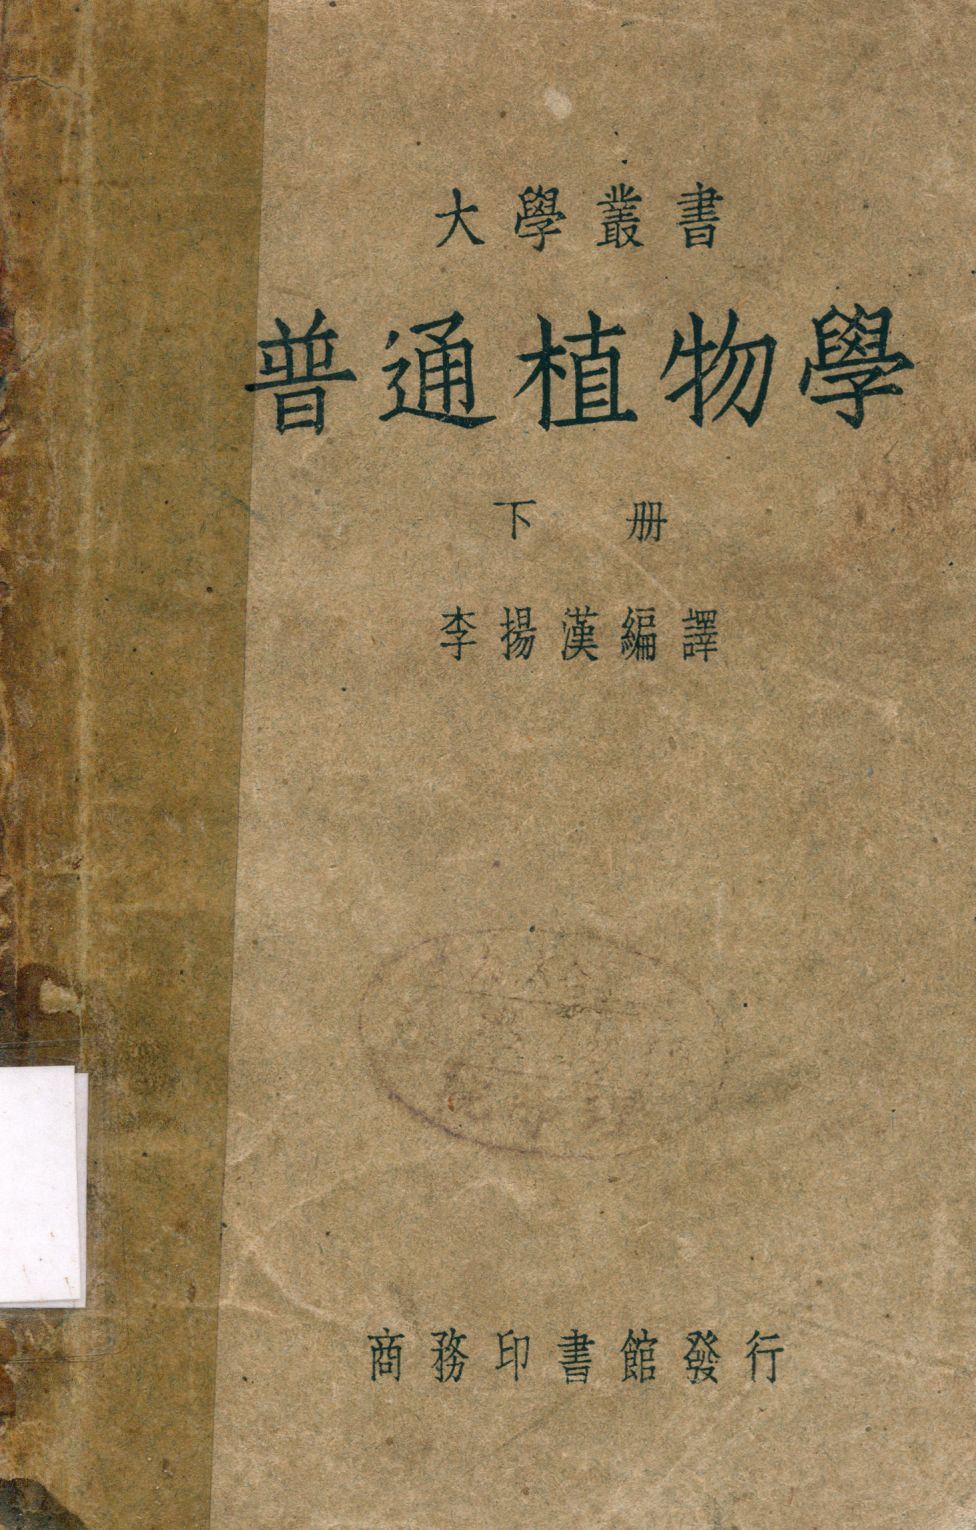 大學叢書
普通植物學
下册
李揚漢編譯
商務印書館發行